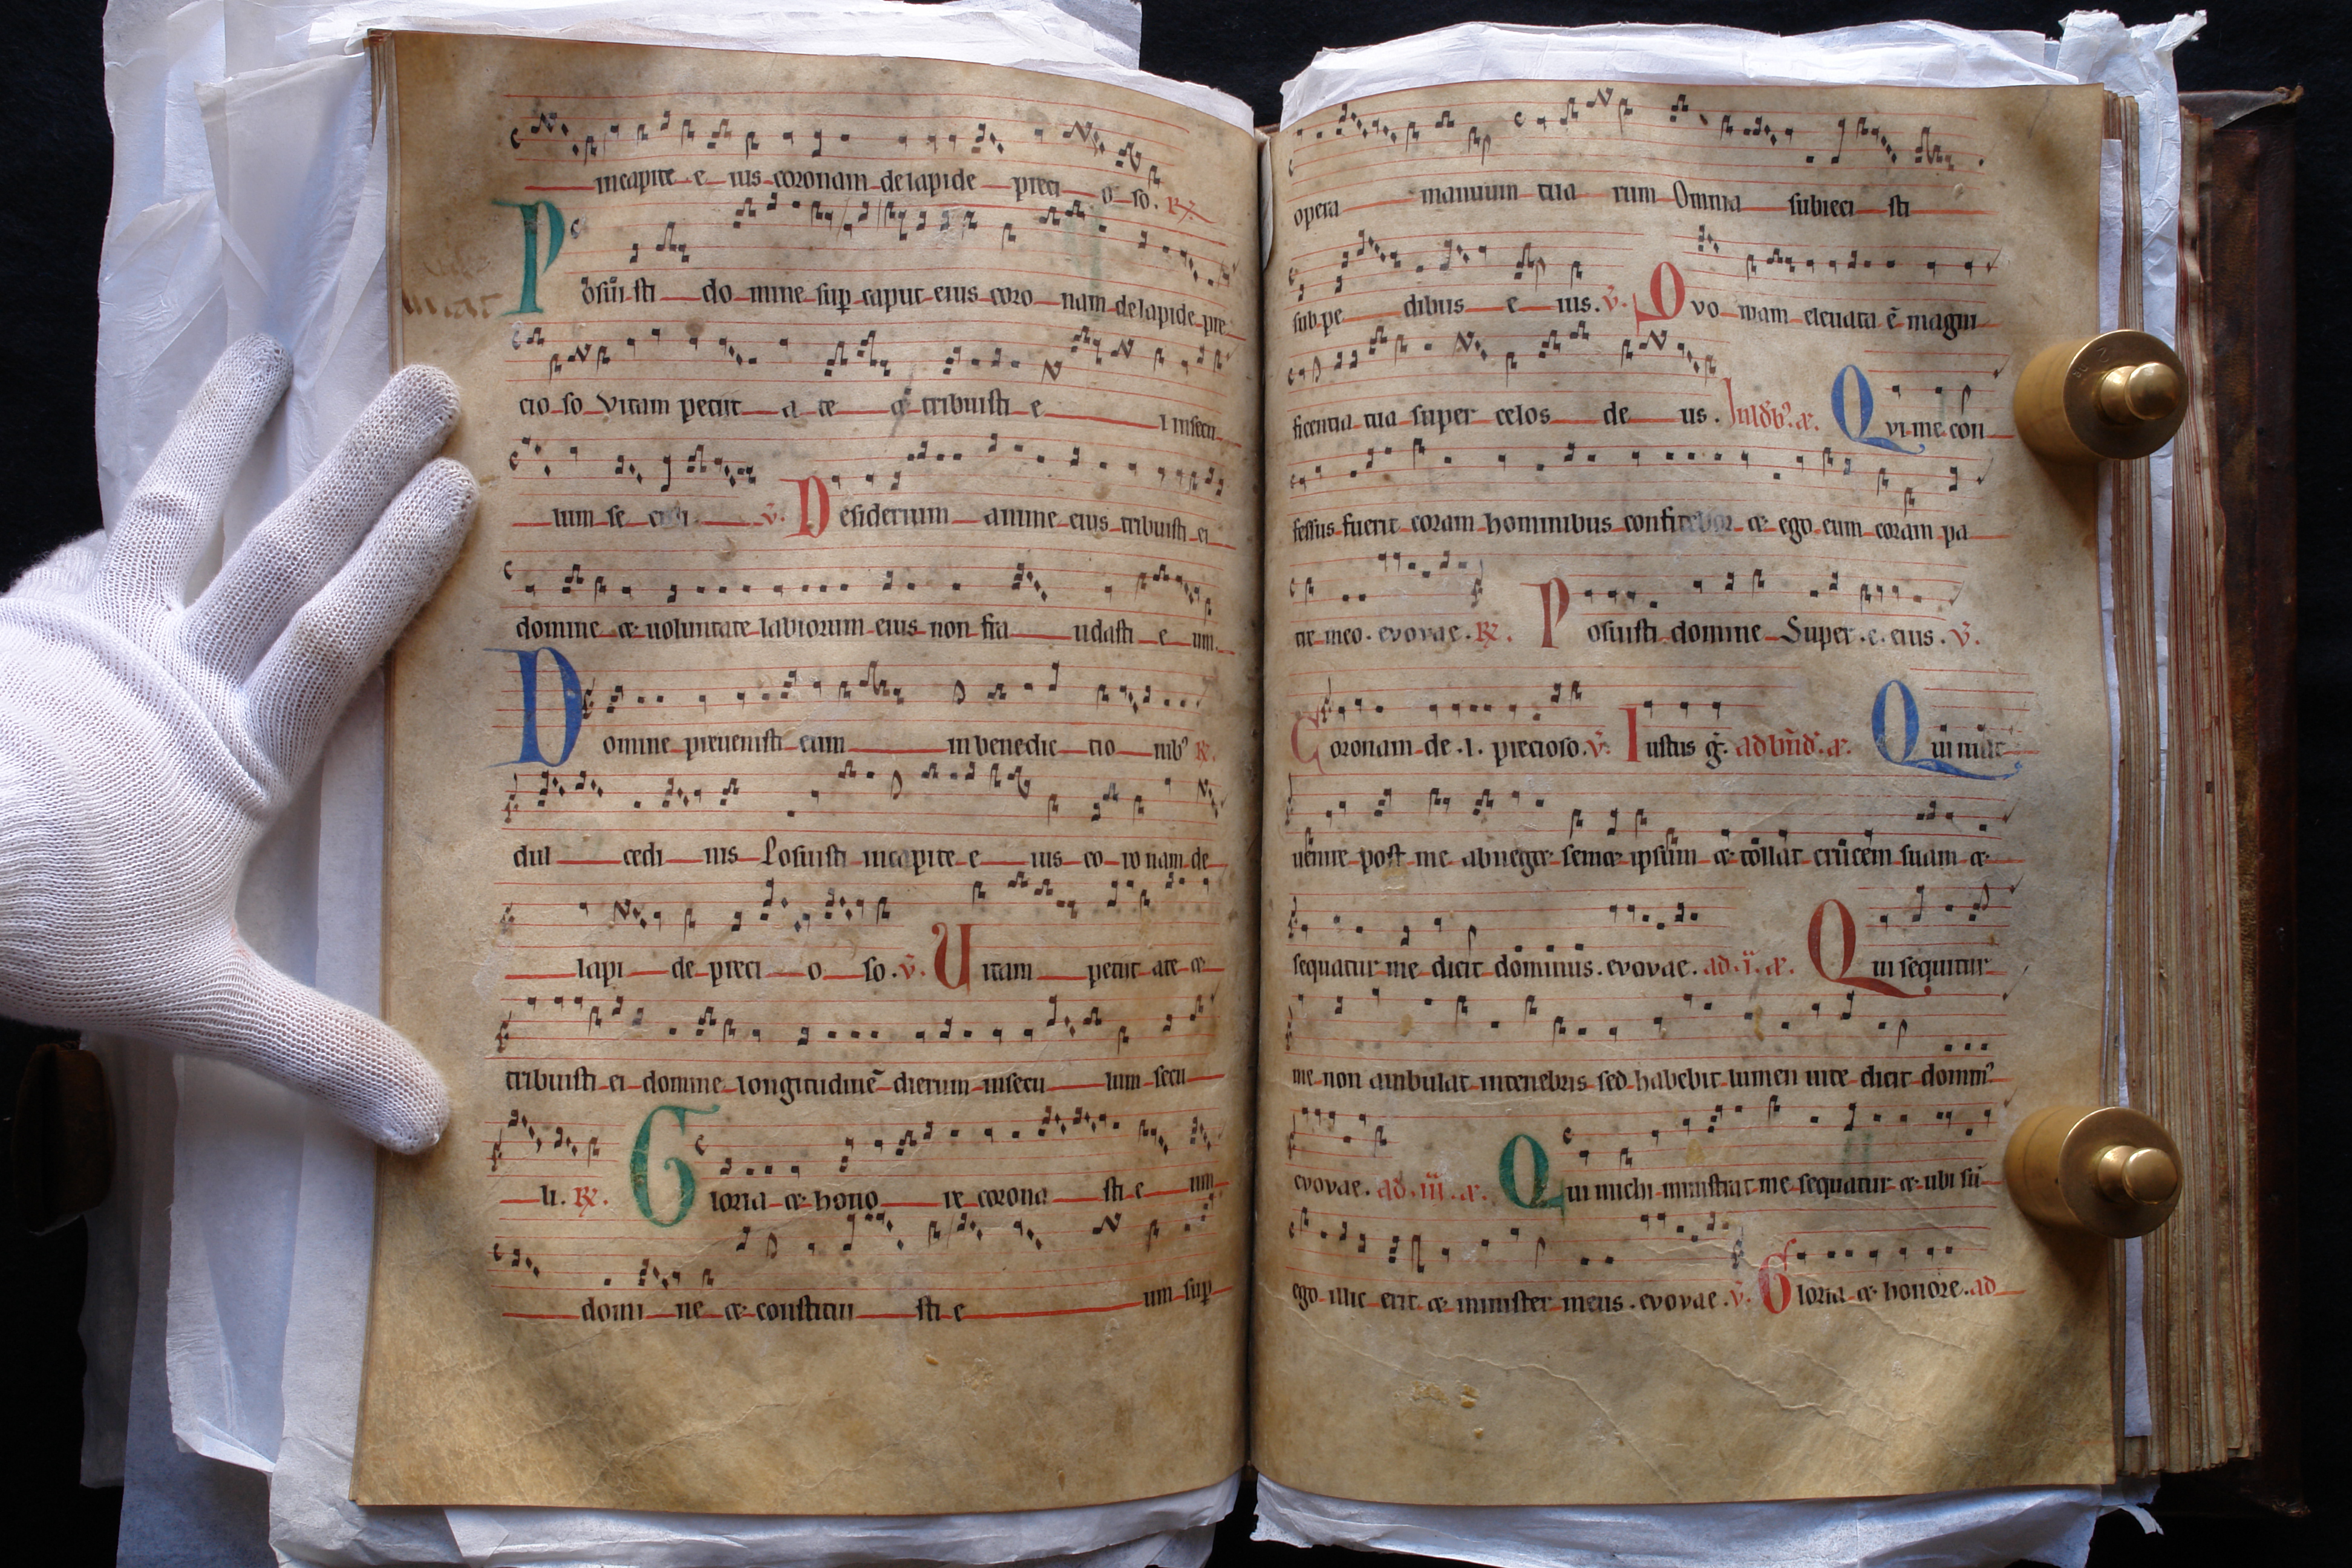 incapite e ius coronam delapide preci o so. ℟.
Posui sti do mine sup caput eius coro nam delapide pre
cio so Vitam petiit a te & tribuisti e i insecu
lum se culi ℣. Desiderium anime eius tribuisti ei
domine & uoluntate labiorum eius non fra udasti e um.
Domine preuenisti eum inbenedic tio nib⁹ ℟.
dul cedi nis Posuisti incapite e ius co ro nam de
lapi de preci o so. ℣. Uitam petiit ate &
tribuisti ei domine longitudinē dierum insecu lum secu
li. ℟. Gloria & hono re corona sti e um
domi ne & constitui sti e um sup
opera manuum tua rum Omnia subieci sti
subpe dibus e ius. ℣. Qvo niam eleuata ē magni
ficentia tua super celos de us. Qvi me con
fessus fuerit coram hominibus confitebor & ego eum coram pa
tre meo. evovae. ℟. Posuisti domine Super. c. eius. ℣.
Coronam de .l. precioso. ℣. Iustus g̃. Qui uult
uenire post me abneget semet ipsum & tollat crucem suam &
sequatur me dicit dominus. evovae. ad. ii. a. Qui sequitur
me non ambulat intenebris sed habebit lumen uite dicit domin⁹
evovae. ad. iii. a. Qui michi ministrat me sequatur & ubi sū
ego illic erit & minister meus. evovae. ℣. Gloria & honore. ad